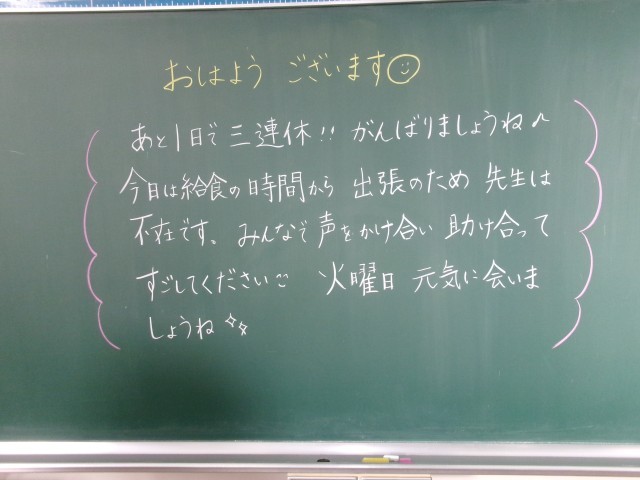 おはよう ございます
あと1日で 三連休!! がんばりましょうね♪
今日は給食の時間から 出張のため 先生は
不在です。みんなで声をかけ合い 助け合って
すごしてください 火曜日 元気に会いま
しょうね